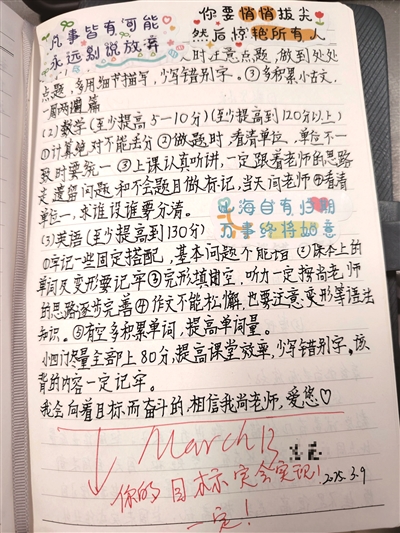 凡事皆有可能
永远别说放弃
你要悄悄拔尖
然后惊艳所有人
时注意点题,做到处处
点题,多用细节描写,少写错别字。③多积累小古文,
一周两篇
(2)数学(至少提高5-10分)(至少提高到120分以上)
①计算绝对不能丢分②做题时,看清单位,单位不一
致时要统一③上课认真听讲,一定跟着老师的思路
走,遗留问题和不会题目做标记,当天问老师④看清
单位一,求谁设谁要分清。
山海自有归期
万事终将如意
(3)英语(至少提高到130分)
①牢记一些固定搭配,基本问题不能错②课本上的
单词及变形要记牢③完形填空,听力一定按尚老师
的思路逐步完善④作文不能松懈,也要注意变形等语法
知识。⑤有空多积累单词,提高单词量。
小四门尽量全部上80分,提高课堂效率,少写错别字。该
背的内容一定记牢。
我会向着目标而奋斗的,相信我尚老师,爱您♡
March 13
你的目标定会实现!2025.3.9
一定!